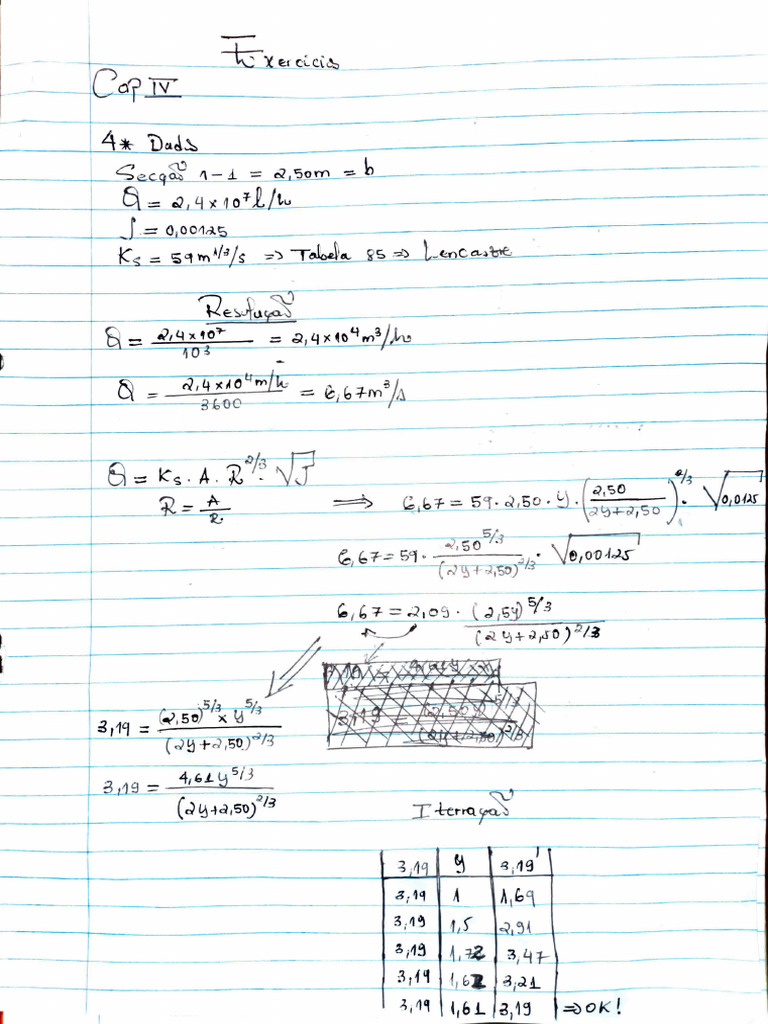 Exercicios
Cap IV
4* Dados
Secção 1-1 = 2,50m = b
Q = 2,4×10⁷ l/h
J = 0,00125
Ks = 59 m^1/3/s => Tabela 85 => Lencastre
Resolução
Q = 2,4×10⁷ / 10³ = 2,4×10⁴ m³/h
Q = 2,4×10⁴ m/h / 3600 = 6,67 m³/s
Q = Ks . A . R^2/3 . √J
R = A/R. => 6,67 = 59 . 2,50 . y . (2,50 / 2y+2,50)^2/3 . √0,0125
6,67 = 59 . 2,50^5/3 / (2y+2,50)^2/3 . √0,00125
6,67 = 2,09 . (2,5y)^5/3 / (2y+2,50)^2/3
3,19 = (2,50)^5/3 × y^5/3 / (2y+2,50)^2/3
3,19 = 4,61y^5/3 / (2y+2,50)^2/3
Iterração
3,19 | y | 3,19'
3,19 | 1 | 1,69
3,19 | 1,5 | 2,91
3,19 | 1,72 | 3,47
3,19 | 1,62 | 3,21
3,19 | 1,61 | 3,19 => OK!